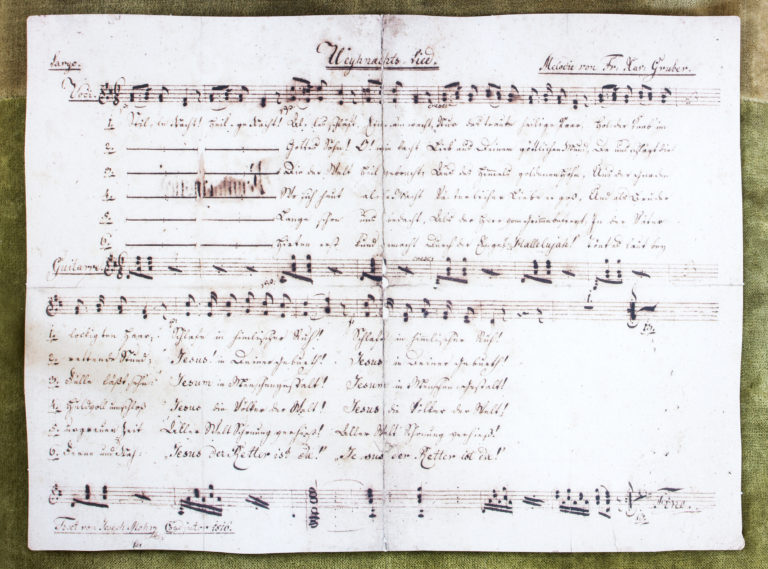 Weyhnachts Lied.
Largo. Melodie von Fr. Xav. Gruber.
Voce.
1. Stille Nacht! Heilige Nacht! Alles schläft. Einsam wacht. Nur das traute heilige Paar. Holder Knab im
2. Gottes Sohn! O! wie lacht Lieb aus Deinem göttlichen Mund, Da
3. Die der Welt Heil gebracht, Aus des Himmels goldenen Höhn, Aus der
4. Wo sich heut alle Macht Väterlicher Liebe ergoß, Und als Bruder
5. Lange schon uns bedacht, Als der Herr vom Grimme befreyt, In der Väter
6. Hirten erst kund gemacht Durch der Engel Hallelujah! Tönt es laut bey
Guitarre.
1. lockigten Haar; Schlafe in himlischer Ruh! Schlafe in himlischer Ruh!
2. rettende Stund; Jesus! in Deiner Geburth! Jesus in Deiner Geburth!
3. Fülle läßt sehn: Jesum in Menschengestalt! Jesum in Menschengestalt!
4. Huldvoll umschloß Jesus die Völker der Welt! Jesus die Völker der Welt!
5. urgrauer Zeit Aller Welt Schonung verhieß! Aller Welt Schonung verhieß!
6. Ferne und Nah: Jesus der Retter ist da! Jesus der Retter ist da!
Fine.
Text von Joseph Mohr Coadjutor 1816.